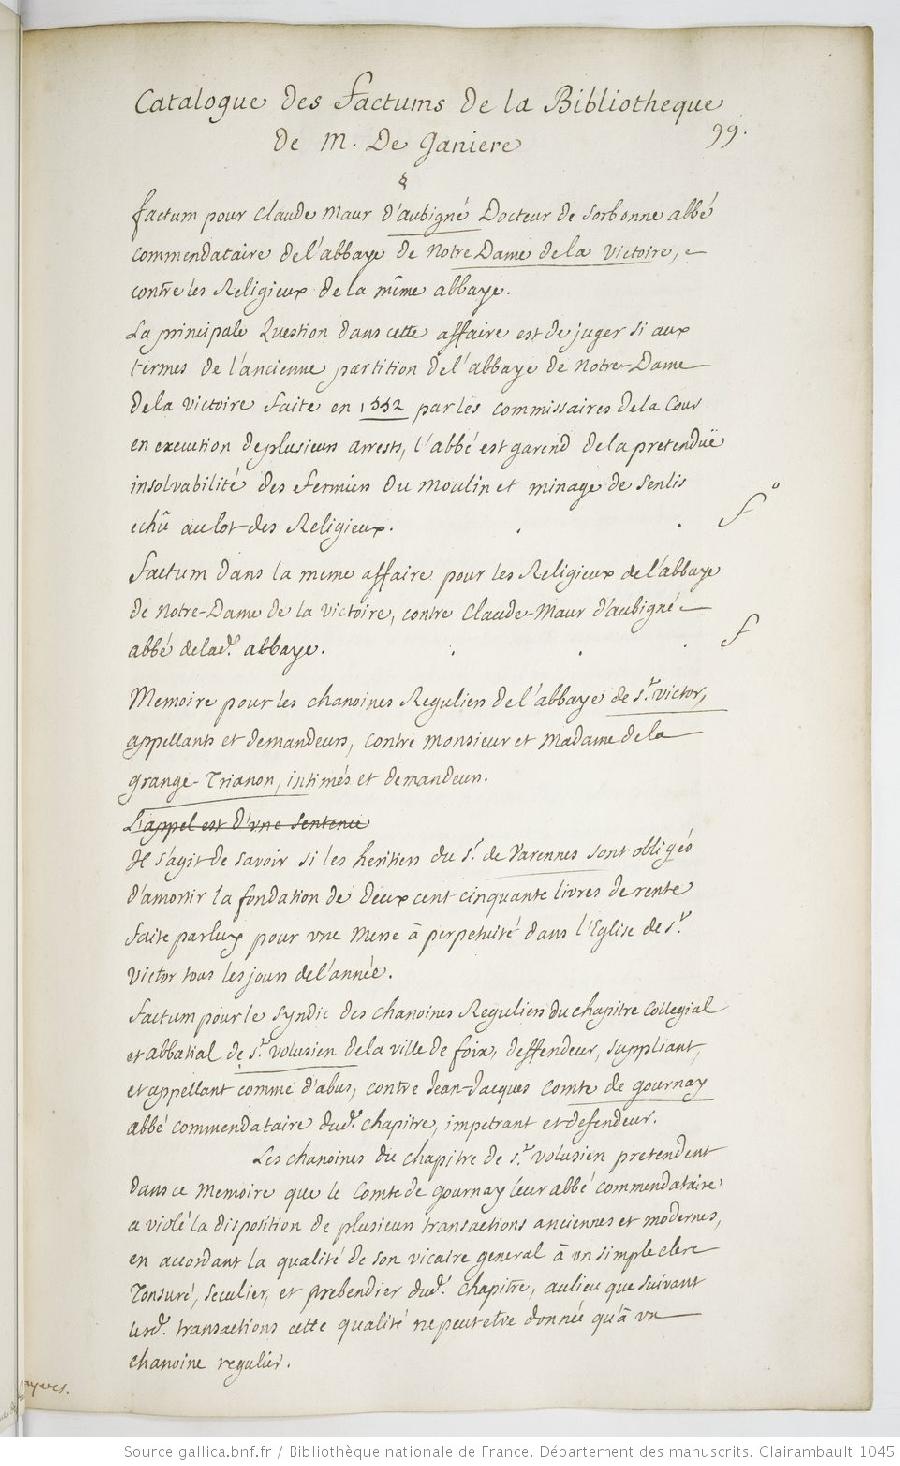 Catalogue des factums de la Bibliotheque
de M. de Ganiere
99.
factum pour Claude Maur d'aubigné Docteur de Sorbonne abbé
commendataire de l'abbaye de Notre Dame de la Victoire,
contre les Religieux de la même abbaye.
La principale question dans cette affaire est de juger si aux
termes de l'ancienne partition de l'abbaye de Notre-Dame
de la Victoire faite en 1552 par les commissaires de la Cour
en execution de plusieurs arrests, l'abbé est garend de la pretenduë
insolvabilité des fermiers du moulin et minage de Senlis
echû au lot des Religieux.
fº
factum dans la meme affaire pour les Religieux de l'abbaye
de Notre-Dame de la Victoire, contre Claude-Maur d'aubigné
abbé de lad. abbaye.
f
Memoire pour les chanoines Reguliers de l'abbaye de St. Victor,
appellants et demandeurs, contre Monsieur et Madame de la
grange-Trianon, intimés et demandeurs.
L'appel est d'une sentence
Il s'agit de savoir si les heritiers du Sr. de Varennes sont obligés
d'amortir la fondation de deux cent cinquante livres de rente
faite par luy pour une Messe à perpetuité dans l'Eglise de St.
Victor tous les jours de l'année.
factum pour le Syndic des chanoines Reguliers du chapitre Collegial
et abbatial de St. Volusien de la ville de foix, deffendeur, suppliant,
et appellant comme d'abus, contre Jean-Jacques Comte de gournay
abbé commendataire dud. chapitre, impetrant et defendeur.
Les chanoines du chapitre de St. Volusien pretendent
dans ce Memoire que le Comte de gournay leur abbé commendataire
a violé la disposition de plusieurs transactions anciennes et modernes,
en accordant la qualité de son vicaire general à un simple clerc
Tonsuré, seculier, et prebendier dud. chapitre, au lieu que suivant
lesd. transactions cette qualité ne peut etre donnée qu'à un
chanoine regulier.
Source gallica.bnf.fr / Bibliothèque nationale de France. Département des manuscrits. Clairambault 1045